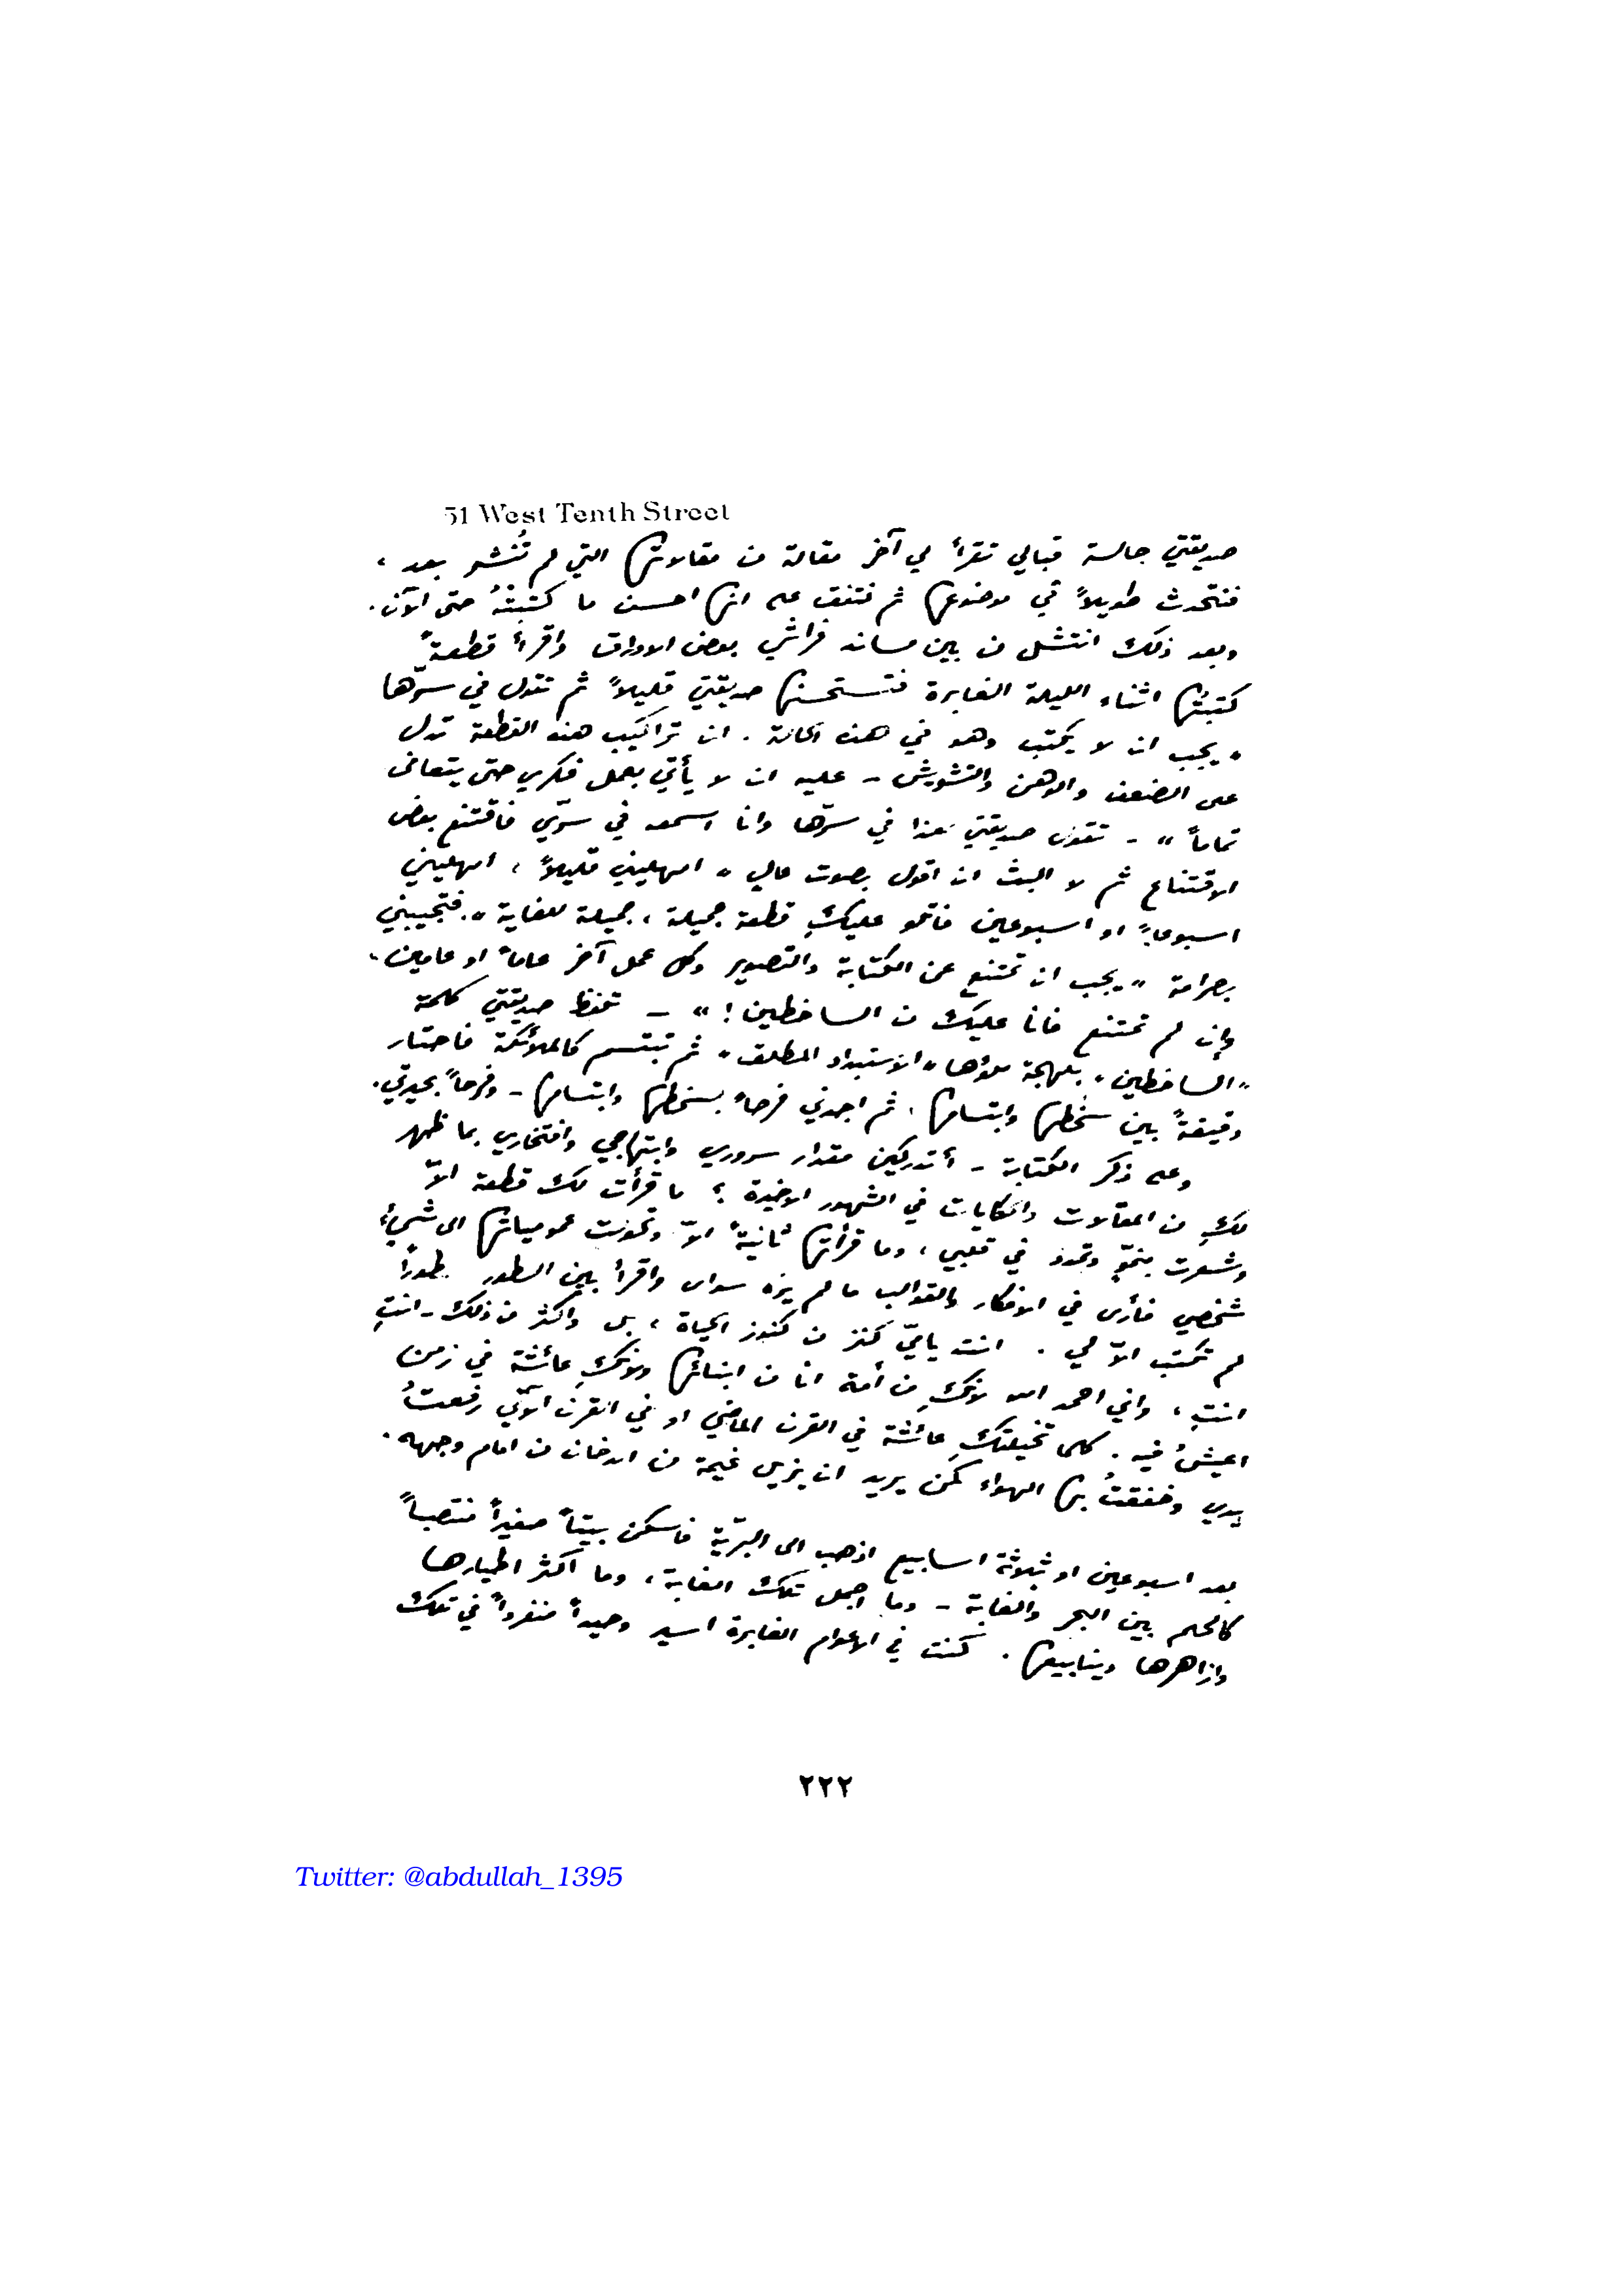 51 West Tenth Street
صديقتي جالسة قبالي تقرأ لي آخر مقالة من مقالاتها التي لم تُنشر بعد ،
فنتحدث طويلاً في موضوعها ثم نتفق على انها احسن ما كتبتْهُ حتى الآن .
وبعد ذلك انتشل من بين مساند فراشي بعض الاوراق واقرأ قطعةً
كتبتُها اثناء الليلة الغابرة فتستحسنها صديقتي قليلاً ثم تقول في سرّها
« يجب ان لا يكتب وهو في هذه الحالة . ان تراكيب هذه القطعة تدل
على الضعف والوهن والتشويش - عليه ان لا يأتي بعمل فكري حتى يتعافى
تماماً » - تقول صديقتي هذا في سرّها وانا اسمعه في سرّي فاقتنع بعض
الاقتناع ثم لا البث ان اقول بصوت عالٍ « امهليني قليلاً ، امهليني
اسبوعاً او اسبوعين فاتلو عليكِ قطعة جميلة ، جميلة للغاية » . فتجيبيني
بصرامة « يجب ان تمتنع عن الكتابة والتصوير وكل عمل آخر عاماً او عامين .
وإن لم تمتنع فانا عليك من الساخطين ! » - تلفظ صديقتي كلمة
« الساخطين » بلهجة ملؤها « الاستبداد المطلق » ثم تبتسم كالملائكة فاحتار
دقيقةً بين سُخطها وابتسامها ، ثم اجدني فرحاً بسخطها وابتسامها - وفرحاً بحيرتي .
وعلى ذكر الكتابة - أتدركين مقدار سروري وابتهاجي وافتخاري بما ظهر
لكِ من المقالات والحكايات في الشهور الاخيرة ؟ ما قرأت لك قطعة الاّ
وشعرت بنموّ وتمدد في قلبي ، وما قرأتها ثانيةً الاّ وتحولت عمومياتها الى شيءٍ
شخصي فأرى في الافكار والقوالب ما لم يره سواى واقرأ بين السطور سطوراً
لم تكتب الاّ لي . انت يا ميّ كنز من كنوز الحياة ، بل واكثر من ذلك - انتِ
انتِ ، واني احمد الله لانكِ من أمة انا من ابنائها ولانكِ عائشة في زمن
اعيشُ فيه . كلما تخيلتكِ عائشة في القرن الماضي او في القرن الآتي رفعتُ
يدي وخفقتُ بها الهواء كمن يريد ان يزيل غيمة من الدخان من امام وجهه .
بعد اسبوعين او ثلاثة اسابيع اذهب الى البرّية فاسكن بيتاً صغيراً منتصباً
كالحلم بين البحر والغابة - وما اجمل تلك الغابة ، وما اكثر اطيارها
وازاهرها وينابيعها . كنت في الاعوام الغابرة اسير وحيداً منفرداً في تلك
٢٢٢
Twitter: @abdullah_1395